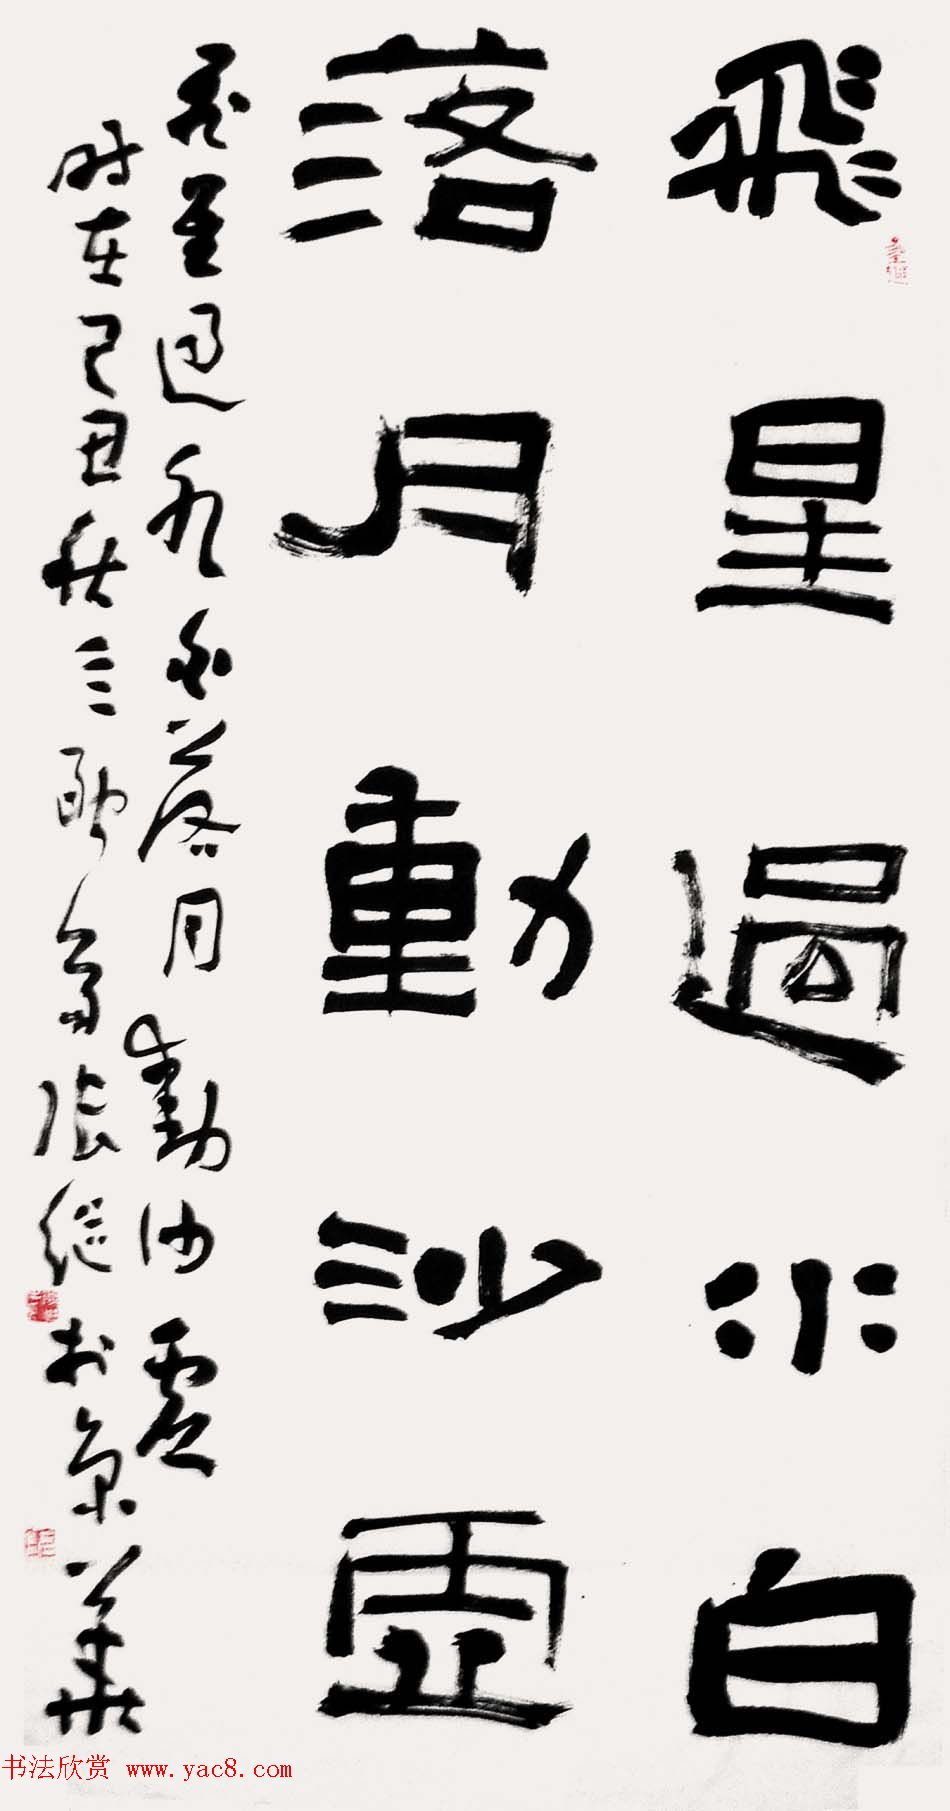 飛星過水白
落月動沙虛
飛星過水白落月動沙虛
时在己丑秋三
張繼於京華
书法欣赏 www.yac8.com